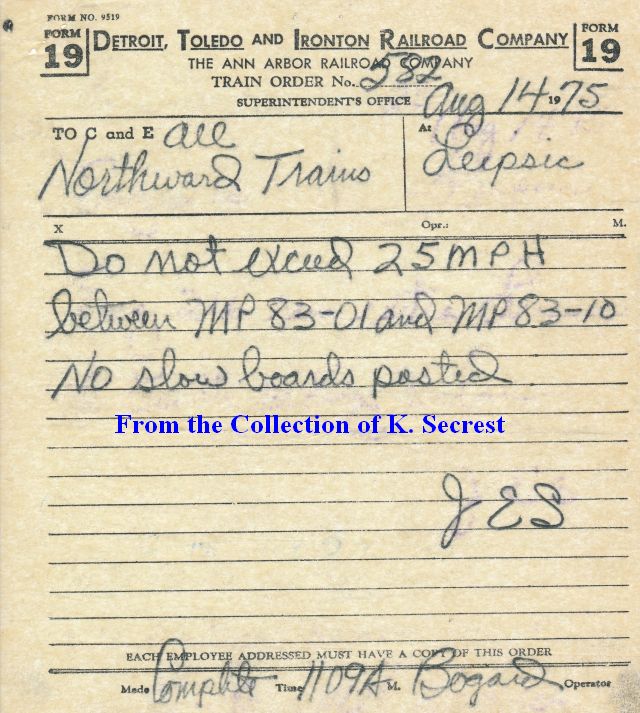 FORM NO. 9519
FORM 19 DETROIT, TOLEDO AND IRONTON RAILROAD COMPANY FORM 19
THE ANN ARBOR RAILROAD COMPANY
TRAIN ORDER No. 582
SUPERINTENDENT'S OFFICE Aug 14 1975
TO C and E All At
Northward Trains Leipsic
X Opr.: M.
Do not exceed 25 MPH
between MP 83-01 and MP 83-10
No slow boards posted
From the Collection of K. Secrest
JES
EACH EMPLOYEE ADDRESSED MUST HAVE A COPY OF THIS ORDER
Made Complete Time 1109A M. Bogard Operator